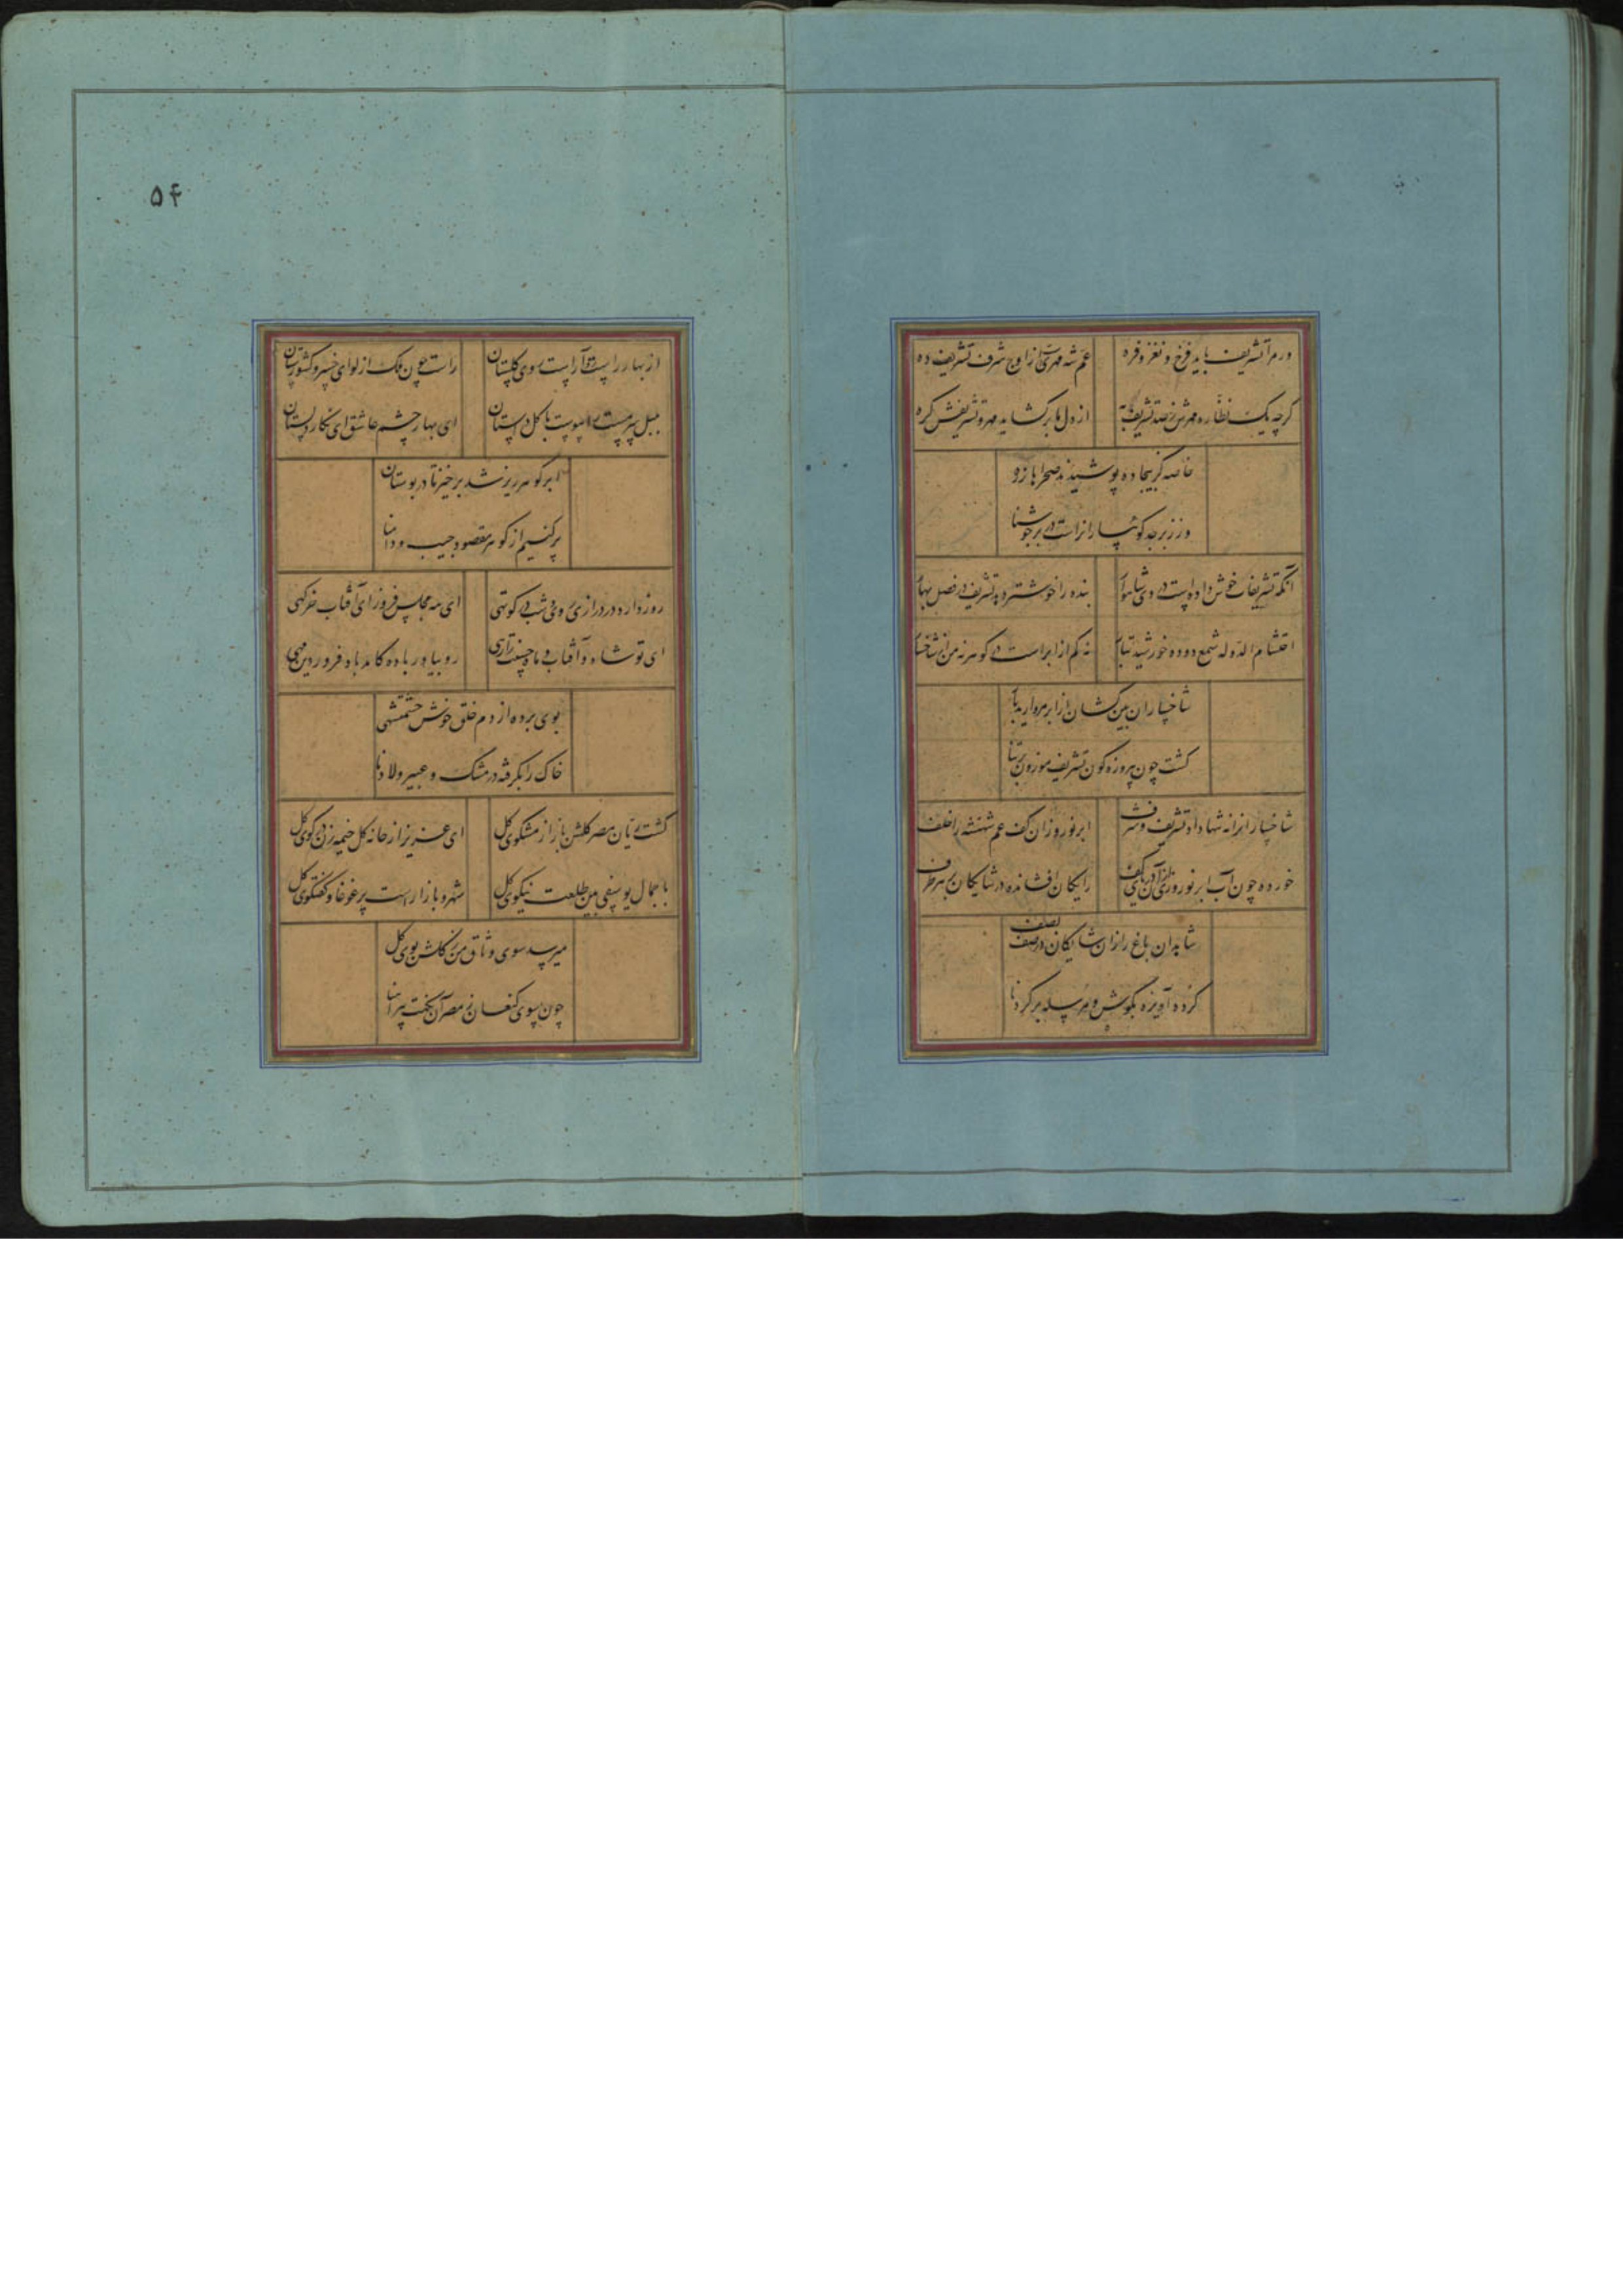 ور مرا تشریف باید فرخ و نغز و فره
عم شه مهریست از اوج شرف تشریف ده
گرچه یک نظاره مهرش ز صد تشریف به
از دل ما برگشاید مهر و تشریفش گره
خاصه کز بیجاده پوشیدند صحراها زره
وز زبرجد کوهساران راست در بر جوشنا
آنکه تشریفات خوش داده است در وی شاهوار
بنده را خوشتر دهد تشریف در فصل بهار
احتشام الدوله شمع دوده خورشید تبار
نه کم از ابر است وی کوهر نه من از شاخسار
شاخساران بین کشان از ابر مروارید بار
گشت چون پیروزه گون تشریف موزون بر تنا
شاخسار انرا نه شها داد تشریف و شرف
ابر نوروز ان کف عم شهنشه را خلف
خورده چون آب ابر نوروزی آن دریای کف
رایگان افشانده در شایگان بر هر طرف
شاهدان باغ را زان شایگان در صف بصف
کرده آویزه بگوش و مرسله بر گردنا
۵۴
از بهار راست و آراست سوی گلستان
راست چون ملک از لوای خسرو کشورستان
بلبل سرمست را پیوست با گل دوستان
ای بهار چشم عاشق ای نگار دلستان
ابر گوهر ریز شد برخیز تا در بوستان
پر کنیم از گوهر مقصود جیب و دامنا
روز دارد در درازی روی و شب در کوتهی
ای مه مجلس فروز ای آفتاب خرگهی
ای تو شاه و آفتاب و ماه
رو بیاور باده کامد ماه فروردین مهی
بوی برده از دم خلق خوش حشمتشهی
خاک را بگرفته در مشک و عبیر و لادنا
گشت ریان مصر گلشن باز از مشکوی گل
ای عزیز از خانه گل خیمه زن در کوی گل
با جمال یوسفی بین طلعت نیکوی گل
شهر و بازار است پر غوغا و گفتگوی گل
میرسد سوی وثاق من ز گلشن بوی گل
چون سوی کنعان ز مصر آن نکهت پیراهنا